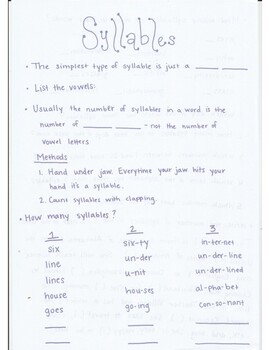 Syllables
• The simplest type of syllable is just a ____ ____
• List the vowels:
• Usually the number of syllables in a word is the
number of ____ ____ - not the number of
vowel letters
Methods
1. Hand under jaw. Everytime your jaw hits
your hand it's a syllable.
2. Count syllables with clapping.
• How many syllables?
1 2 3
six six-ty in-ter-net
line un-der un-der-line
lines u-nit un-der-lined
house hou-ses al-pha-bet
goes go-ing con-so-nant